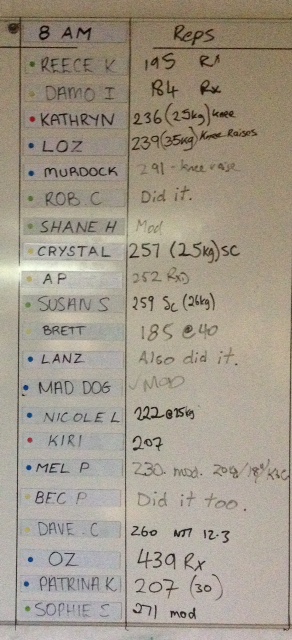 8 AM Reps
REECE K 195 Rx
DAMO I 184 Rx
KATHRYN 236 (25kg) knee
LOZ 239 (35kg) Knee Raises
MURDOCK 291 - knee raise
ROB C Did it.
SHANE H Mod
CRYSTAL 257 (25kg) SC
AP 252 RxD
SUSAN S 259 Sc (26kg)
BRETT 185 @ 40
LANZ Also did it.
MAD DOG MOD
NICOLE L 222 @ 25kg
KIRI 207
MEL P 230. mod.
BEC P Did it too.
DAVE . C 260 NTT 12.3
OZ 439 Rx
PATRINA K 207 (30)
SOPHIE S 271 mod